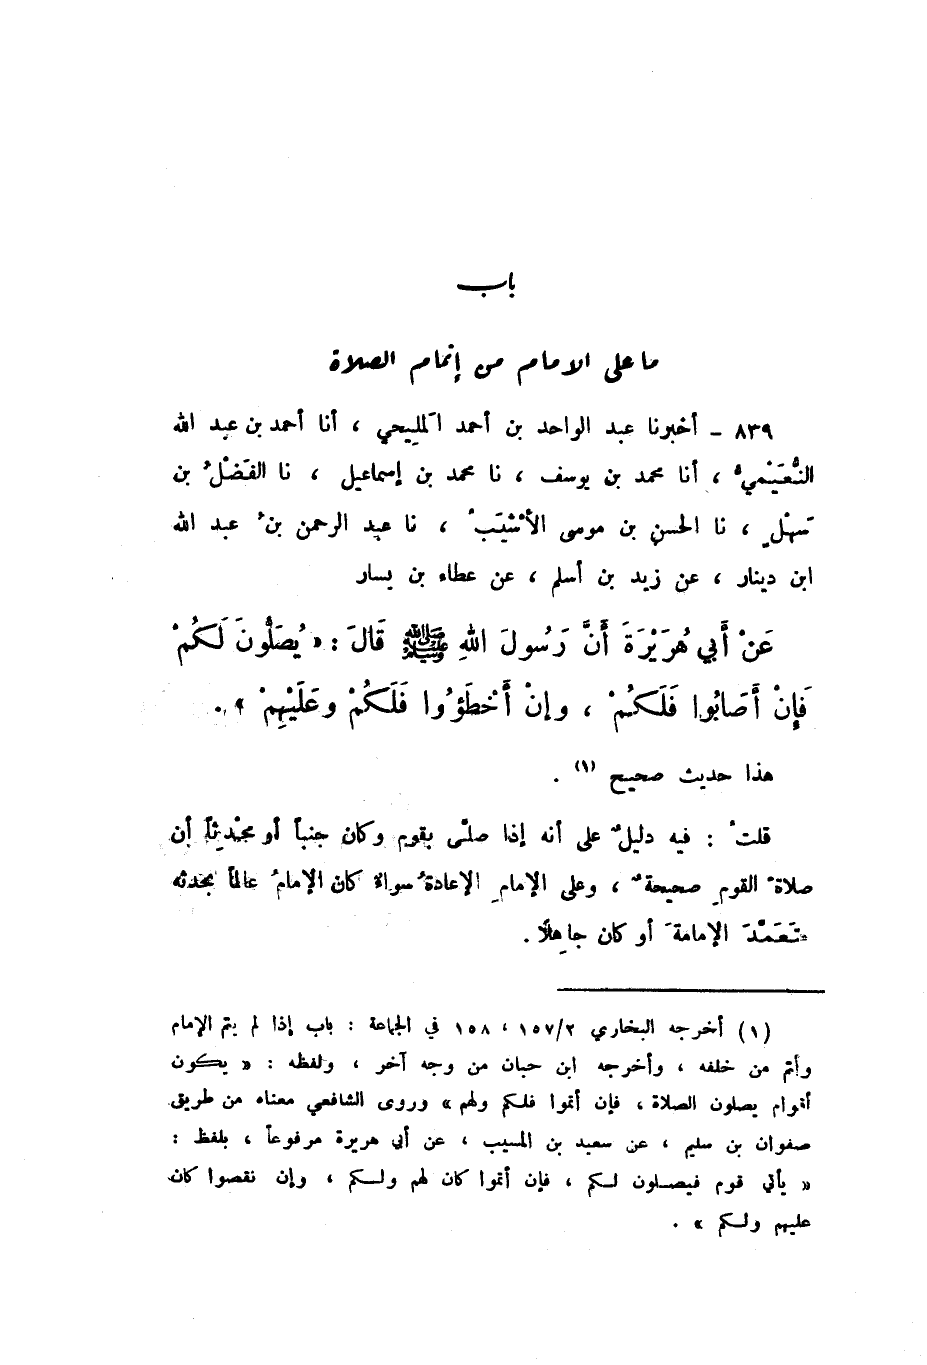 باب
ما على الامام من إتمام الصلاة
٨٣٩ - أخبرنا عبد الواحد بن أحمد المَلِيحي ، أنا أحمد بن عبد الله
النُّعَيْمي ، أنا محمد بن يوسف ، نا محمد بن إسماعيل ، نا الفَضْلُ بن
سَهْلٍ ، نا الحسن بن موسى الأشْيَبُ ، نا عبد الرحمن بنُ عبد الله
ابن دينار ، عن زيد بن أسلم ، عن عطاء بن يسار
عَنْ أَبي هُرَيْرَةَ أَنَّ رَسُولَ اللهِ ﷺ قَالَ : « يُصَلُّونَ لَكُمْ
فَإِنْ أَصَابُوا فَلَكُمْ ، وإنْ أَخْطَؤُوا فَلَكُمْ وعَلَيْهِمْ » .
هذا حديث صحيح (١) .
قلتُ : فيه دليلٌ على أنه إذا صلّى بقوم وكان جنباً أو محْدِثاً أن
صلاةَ القومِ صحيحةٌ ، وعلى الإمامِ الإعادةُ سواءٌ كان الإمامُ عالماً بحَدثه
تَعَمَّدَ الإمامةَ أو كان جاهِلًا .
(١) أخرجه البخاري ١٥٧/٢ ، ١٥٨ في الجماعة : باب إذا لم يتم الإمام
وأتم من خلفه ، وأخرجه ابن حبان من وجه آخر ، ولفظه : « يكون
أقوام يصلون الصلاة ، فإن أتموا فلكم ولهم » وروى الشافعي معناه من طريق
صفوان بن سليم ، عن سعيد بن المسيب ، عن أبي هريرة مرفوعاً ، بلفظ :
« يأتي قوم فيصلون لكم ، فإن أتموا كان لهم ولكم ، وإن نقصوا كان
عليهم ولكم » .